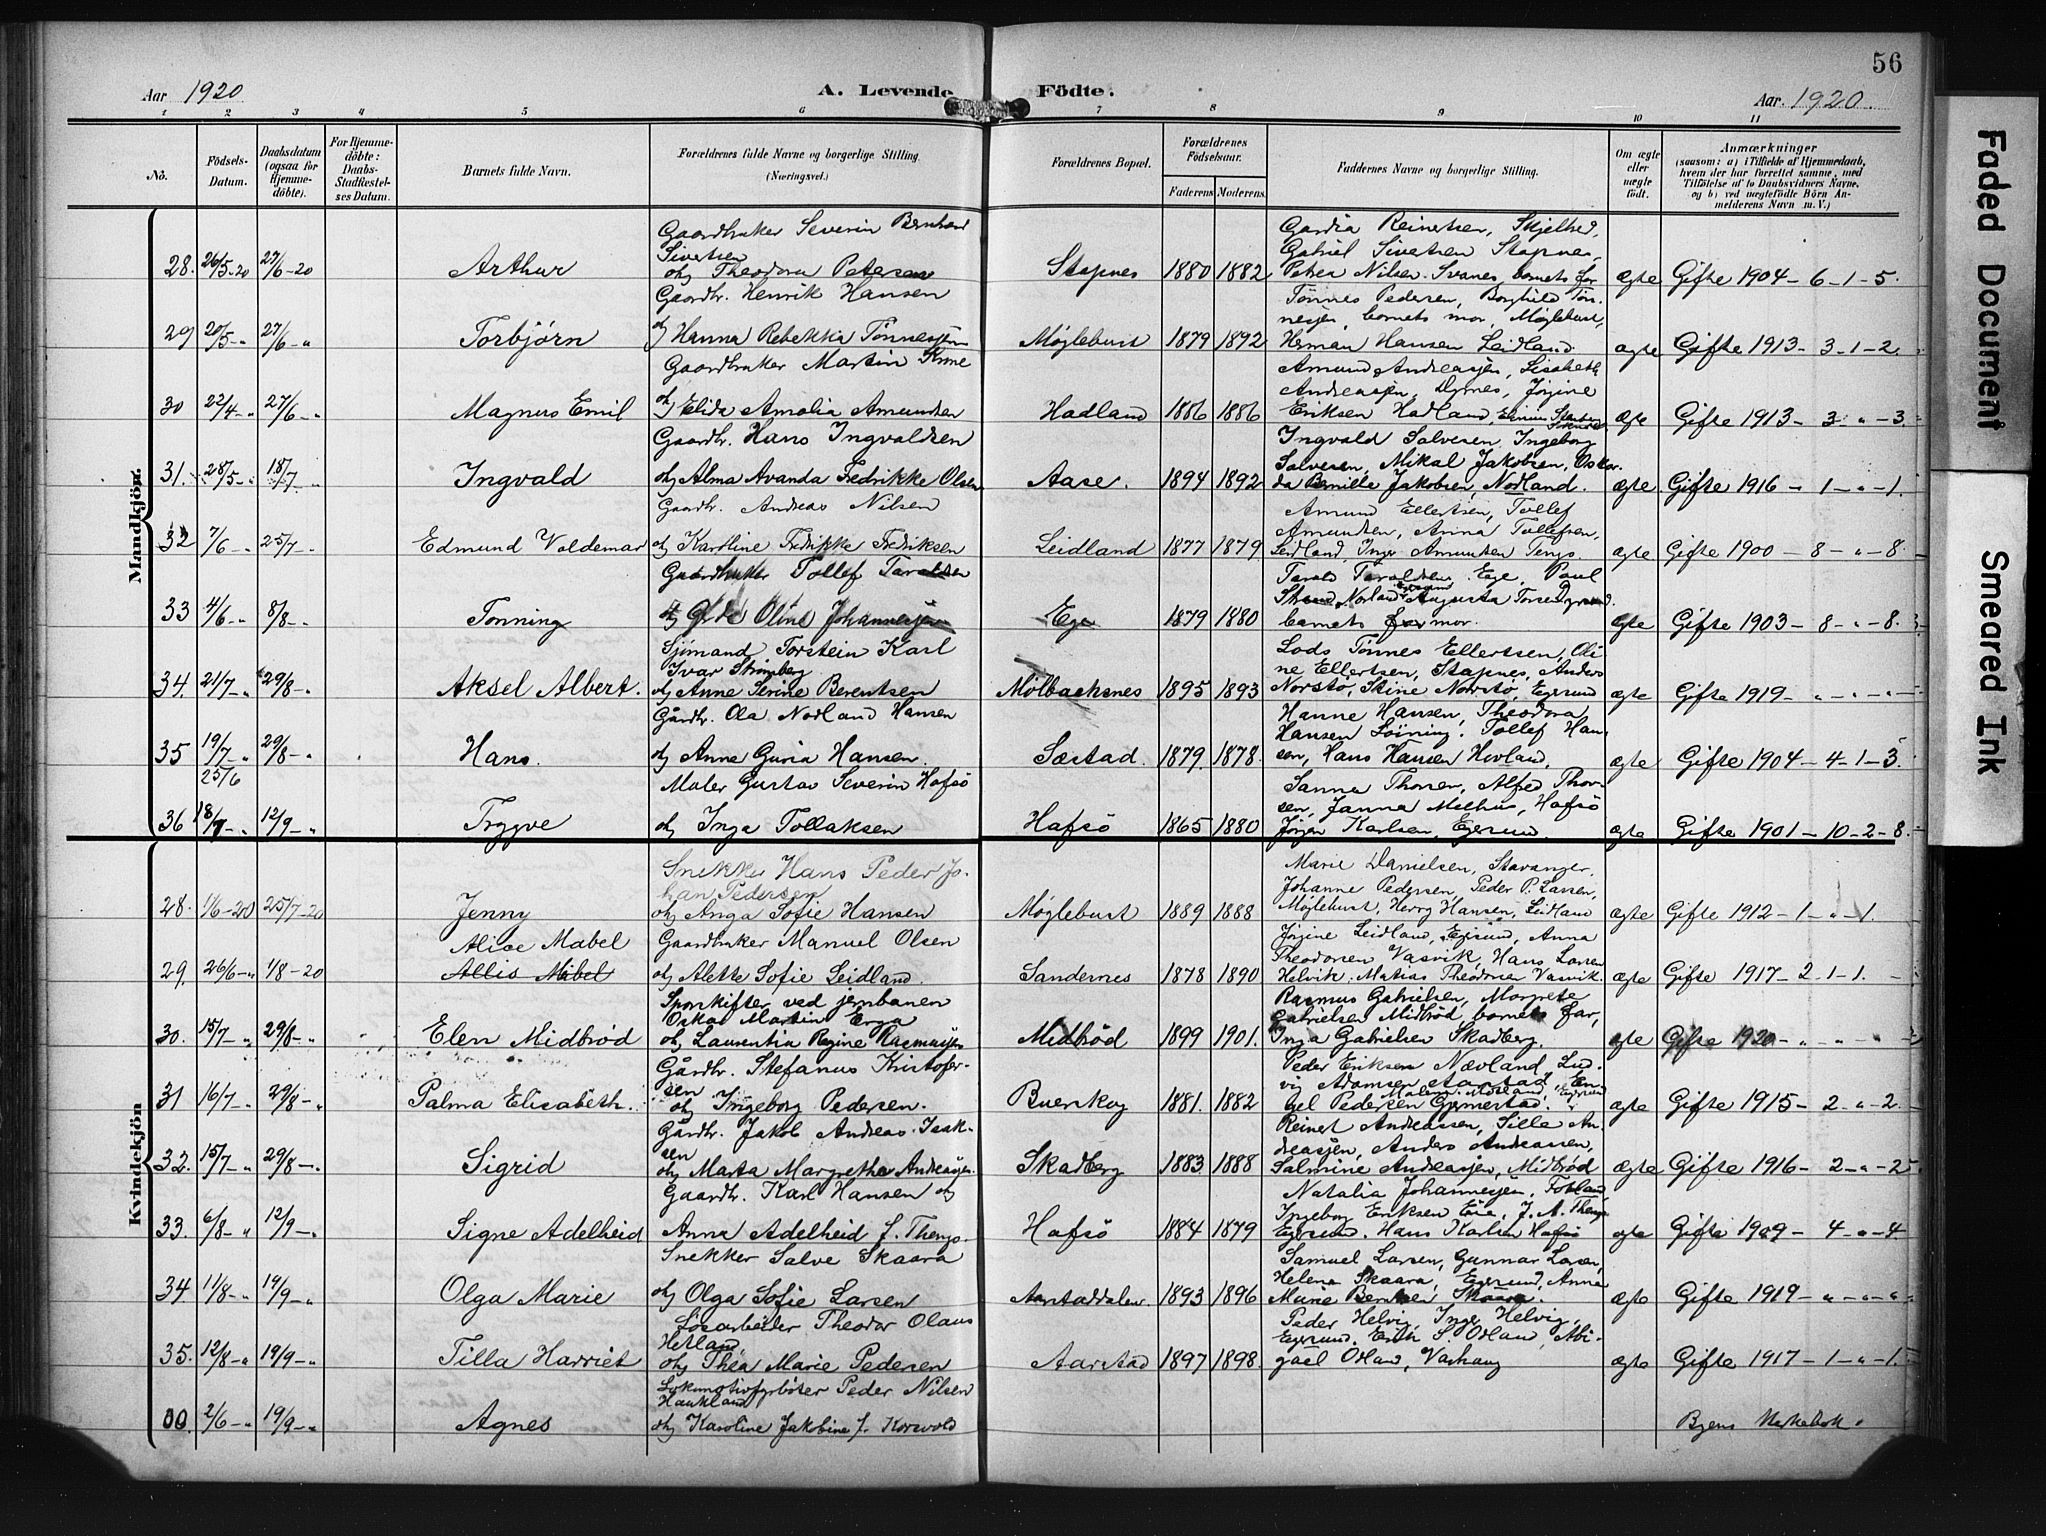 56
Aar 1920
A. Levende Födte.
Aar 1920.
1 2 3 4 5 6 7 8 9 10 11
No.
Födsels-Datum.
Daabsdatum (ogsaa for Hjemme-döbte).
For Hjemme-döbte: Daabs-Stadfæstel-ses Datum.
Barnets fulde Navn.
Forældrenes fulde Navne og borgerlige Stilling. (Næringsvei.)
Forældrenes Bopæl.
Forældrenes Födselsaar.
Faderens
Moderens.
Faddernes Navne og borgerlige Stilling.
Om ægte eller uægte födt.
Anmærkninger
(saasom: a) i Tilfælde af Hjemmedaab,
hvem der har forrettet samme, med
Tilföielse af to Daabsvidners Navne,
og b) ved uægtefödte Börn An-
melderens Navn m. V.)
Mandkjön.
Gaardbruker Severin Bernhard
Sivertsen
28. 26/5-20 27/6-20 Arthur og Theodora Petersen Stapnes 1880 1882
Gabriel Sivertsen Stapnes,
Peter Nilsen Svanes, barnets far
ægte Gifte 1904 - 6 - 1 - 5.
Gaardbr. Henrik Hansen
29 20/5 - „ 27/6 - „ Torbjørn og Hanna Rebekka Tønnessen Møglebust 1879 1892
Tønnes Pedersen, Borghild Tøn-
nesen, barnets mor, Møglebust,
Herman Hansen Leidland.
ægte Gifte 1913 - 3 - 1 - 2.
Gaardbruker Martin
30 22/4 - „ 27/6 - „ Magnus Emil og Elida Amalia Amundsen Hadland 1886 1886
Amund Andreasen, Lisabeth
Andreasen, Jørgine
Eriksen Hadland,
ægte Gifte 1913 - 3 - „ - 3.
Gaardbr. Hans Ingvaldsen
31. 28/5 - „ 18/7 - „ Ingvald og Alma Avanda Fredrikke Olsen Aase. 1894 1892
Ingvald Salvesen, Ingeborg
Salvesen, Mikal Jakobsen, Oskar
Jakobsen, Nodland.
ægte Gifte 1916 - 1 - „ - 1.
Gaardbr. Andreas Nilsen
32 7/6 - „ 25/7 - „ Edmund Valdemar og Karoline Fredrikke Fredriksen Leidland 1877 1879
Amund Ellertsen, Tollef
Amundsen, Anna Tollefsen,
Leidland, Inger Amundsen Tengs.
ægte Gifte 1900 - 8 - „ - 8.
Gaardbruker Tollef Taraldsen
33 4/6 - „ 8/8 - „ Tonning og Oline Johannessen Ege 1879 1880
Tarald Taraldsen Ege, Paul
Augusta
barnets mor.
ægte Gifte 1903 - 8 - „ - 8.
Sjømand Torstein Karl
Ivar Strømberg
34. 21/7 - „ 29/8 - „ Aksel Albert. og Anne Serine Berentsen Mølbachsnes 1895 1893
Lods Tønnes Ellertsen, Oli-
ne Ellertsen, Stapnes, Anders
Norstø, Stine Norstø, Egersund
ægte Gifte 1919 - „ - „ - „
Gårdbr. Ola Nodland Hansen
35 19/7 - „ 29/8 - „ Hans. og Anne Guria Hansen. Sæstad. 1879 1878.
Hanne Hansen, Theodora
Hansen Løining. Tollef Han-
sen, Hans Hansen Hovland.
ægte Gifte 1904 - 4 - 1 - 3.
25/6
Maler Gustav Severin Hafsø
36 18/7 - „ 12/9 - „ Trygve og Inga Tollaksen Hafsø 1865 1880
Sanna Thorsen, Alfred Thor-
sen, Janna Melhus, Hafsø
Jørgen Karlsen, Egersund.
ægte Gifte 1901 - 10 - 2 - 8.
Kvindekjön
Snekker Hans Peder Jo-
han Pedersen
28. 1/6-20 25/7-20 Jenny og Anga Sofie Hansen Møglebust 1889 1888
Marie Danielsen, Stavanger.
Johanne Pedersen, Peder P. Larsen,
Møglebust, Herry Hansen, Leidland
ægte Gifte 1912 - 1 - „ - 1.
Alice Mabel Gaardbruker Manuel Olsen
29. 26/6 - „ 1/8-20 Allis Mabel og Alette Sofie Leidland. Sandernes 1878 1890
Jørgine Leidland, Egersund, Anna
Theodorsen Vasvik, Hans Larsen
Helvik, Matias Theodorsen Vasvik.
ægte Gifte 1917 - 2 - 1 - 1.
Sporskifter ved jernbanen
Oskar Martin Erga
30. 15/7 - „ 29/8 - „ Elen Midbrød og Laurentia Regine Rasmussen Midbrød 1899 1901.
Rasmus Gabrielsen, Margrete
Gabrielsen Midbrød, barnets far,
Inga Gabrielsen Skadberg.
ægte Gifte 1920 - „ - „ - „
Gårdbr. Stefanus Kristofer-
sen
31 16/7 - „ 29/8 - „ Palma Elisabeth. og Ingeborg Pedersen. Buerskog 1881. 1882
Peder Eriksen Nævland, Lud-
vig Adamsen Aarstad, En-
gel Pedersen Gyrmestad.
ægte Gifte 1915 - 2 - „ - 2.
Gårdbr. Jakob Andreas Isak-
sen
32. 15/7 - „ 29/8 - „ Sigrid og Marta Margrethe Andreassen Skadberg 1883 1888
Reinert Andreassen, Sille An-
dreasen, Anders Andreassen,
Salmine Andreasen, Midbrød
ægte Gifte 1916 - 2 - „ - 2
Gaardbr. Karl Hansen og
33. 6/8 - „ 12/9 - „ Signe Adelheid Anna Adelheid f. Thengs. Hafsø 1884 1879
Natalia Johannesen, Fotland,
Ingeborg Eriksen Eie, J. A. Thengs
Egersund. Hans Karlsen Hafsø
ægte Gifte 1909 - 4 - „ - 4
Snekker Salve Skaara
34. 11/8 - „ 19/9 - „ Olga Marie og Olga Sofie Larsen Aarstaddalen. 1893 1896
Samuel Larsen, Gunnar Larsen,
Helena Skaara, Egersund, Anna
Marie Berntsen Skaara.
ægte Gifte 1919 - „ - „ - „
Løsarbeider Theodor Olaus
Hetland
35. 12/8 - „ 19/9 - „ Tilla Harriet og Thea Marie Pedersen Aarstad 1897 1898.
Peder Helvig, Inger Helvig,
Egersund, Erik S. Ødland, Abi-
gael Ødland, Varhaug
ægte Gifte 1917 - 1 - „ - 1.
Lokomotivfyrbøter Peder Nilsen
Haukland
00. 2/6 - „ 19/9 - „ Agnes og Karoline Jakobine f. Korsvold
Byens kirkebok.
Faded Document
Smeared Ink